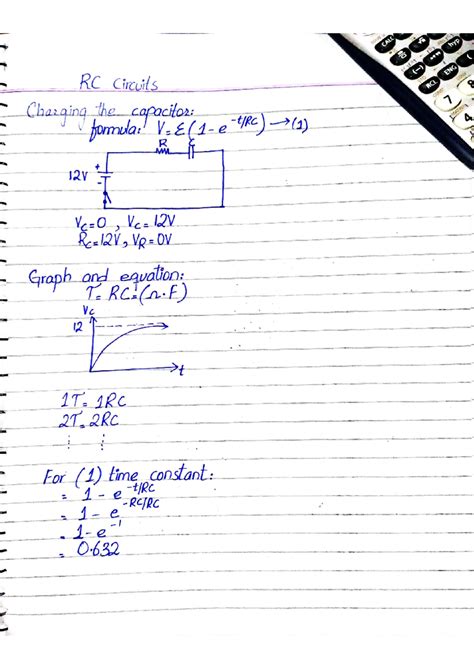 CALC hyp
RCL ENG
7
4
RC Circuits
Charging the capacitor:
formula: V = Ɛ(1 - e^-t/RC) → (1)
R C
12V + -
Vc=0 , Vc= 12V
Rc=12V, VR= 0V
Graph and equation:
T= RC=(Ω.F)
Vc
12
t
1T= 1RC
2T= 2RC
⋮ ⋮
For (1) time constant:
= 1 - e^-t/RC
= 1 - e^-RC/RC
= 1 - e^-1
= 0.632